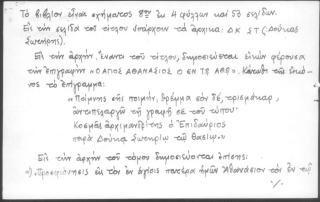 Τὸ βιβλίον εἶναι σχήματος 8ου ἐκ 4 φύλλων καὶ 50 σελίδων.
Εἰς τὴν σελίδα τοῦ τίτλου ὑπάρχουν τὰ ἀρχικά: ΔΚ ΣΤ (= Δούκας
Σωτήρης).
Εἰς τὴν ἀρχήν, ἔναντι τοῦ τίτλου, δημοσιεύεται εἰκὼν φέρουσα
τὴν ἐπιγραφὴν «Ο ΑΓΙΟΣ ΑΘΑΝΑΣΙΟΣ Ο ΕΝ ΤΩ ΑΘΩ». Κάτωθι τῆς εἰκό-
νος τὸ ἐπίγραμμα:
«Ποίμνης σῆς ποιμήν, θρέμμα σὸν δέ, τρισμάκαρ,
ἀντιπελαργῶν τῇ γραφῇ σε τοῦ τύπου
Κοσμᾶς ἀρχιμανδρίτης ὁ Ἐπιδαύριος
παρὰ Δούκα Σωτηρίῳ τῷ Θασίῳ.»
Εἰς τὴν ἀρχὴν τοῦ τόμου δημοσιεύονται ἐπίσης:
α) Προσφώνησις εἰς τὸν ἐν ἁγίοις πατέρα ἡμῶν Ἀθανάσιον τὸν ἐν τῷ
./.